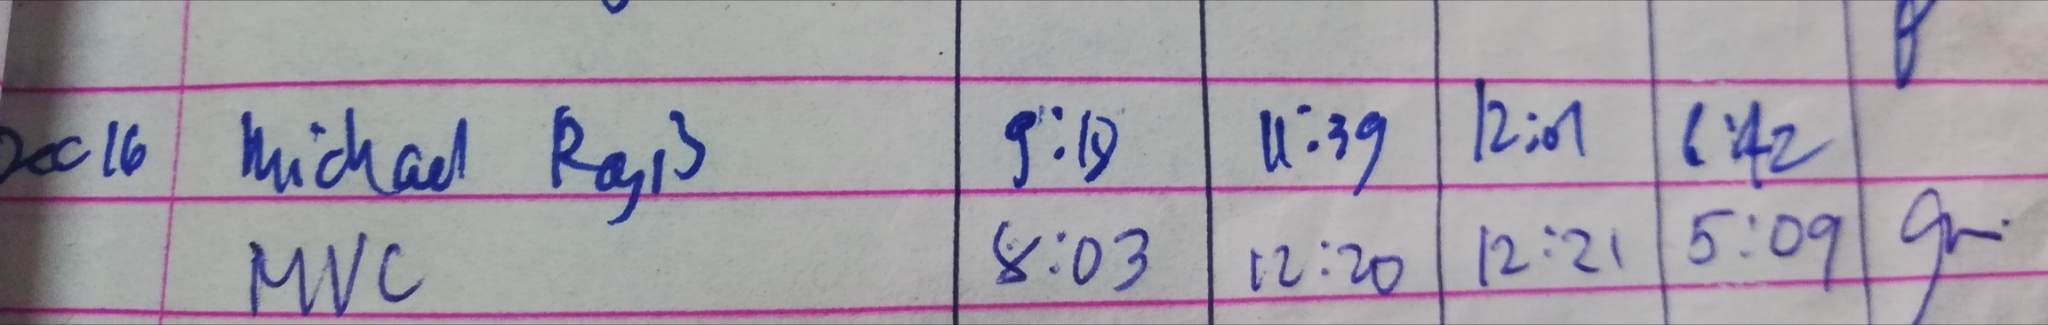 Dec 16 Michael 11:39 12:01 6:42
MVC 8:03 12:20 12:21 5:09